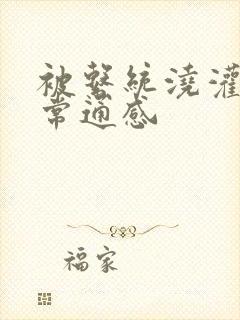 被系统浇灌
常通感
福家